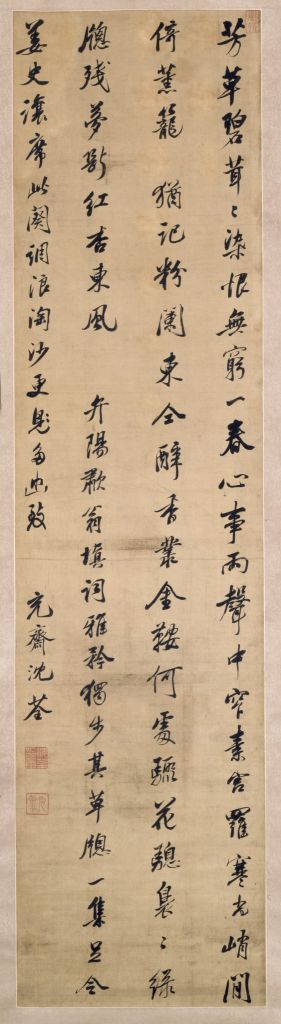 芳草碧茸〻染恨無窮一春心事雨聲中窄素宮羅寒尚峭閒
倚薰籠 猶記粉闌東仝醉香叢金鞍何處驟花驄裊〻綠
牕殘夢斷紅杏東風 弁陽歗翁填詞雅矜獨步其草牕一集足令
姜史讓席此闋調浪淘沙更見多幽致 充齋沈荃